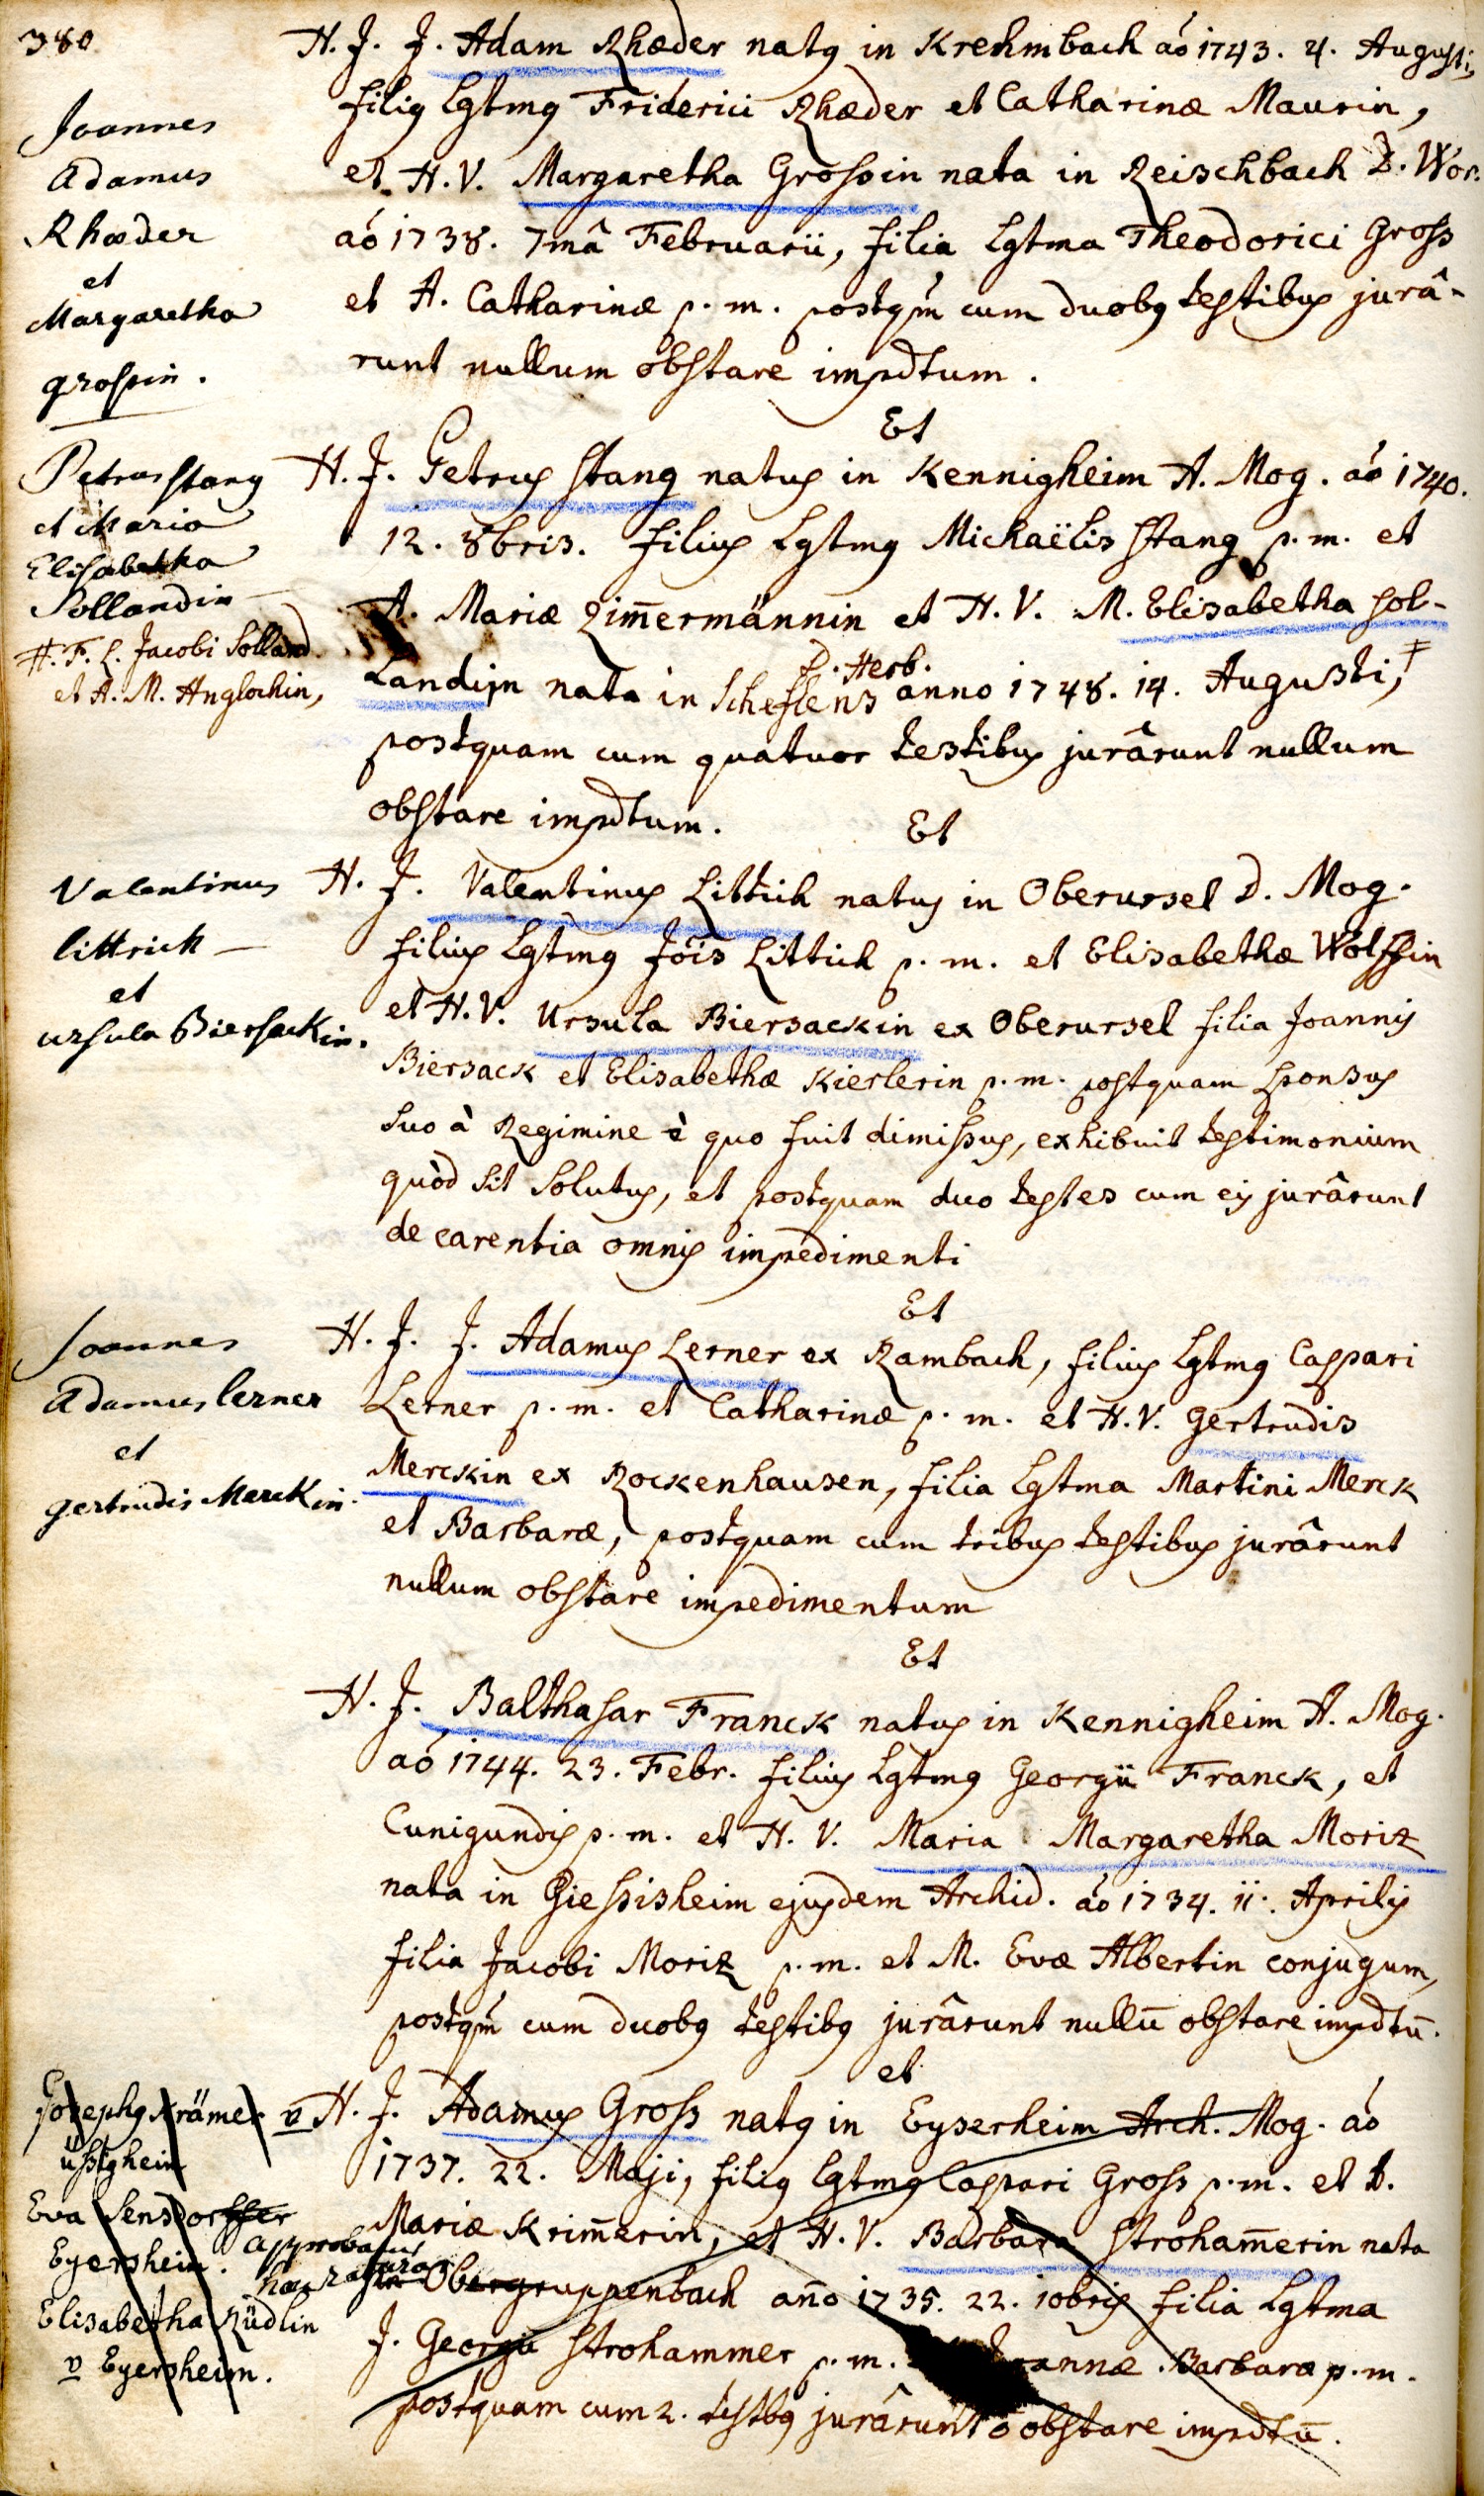 380
H. J. J. Adam Rhæder natg in Krehmbach aó 1743. 4. Augusti,
filig Lgtmg Friderici Rhæder et Catharinæ Maurin,
et H. V. Margaretha Grossin nata in Reischbach D. Wor.
aó 1738. 7mâ Februarii, filia Lgtma Theodorici Gross
et A. Catharinæ p. m. postqm̃ cum duobg testibus jurâ-
runt nullum obstare impdtum.
Joannes
Adamus
Rhæder
et
Margaretha
grossin.
Et
H. J. Petrus Stang natus in Kennigheim A. Mog. aó 1740.
12. 8bris. filius Lgtmg Michaëlis Stang p. m. et
A. Mariæ Zim̄ermännin et H. V. M. Elisabetha Sol-
landin nata in Scheflens D. Herb. anno 1748. 14. Augusti, ‡
postquam cum quatuor testibus jurârunt nullum
obstare impdtum.
Petrus Stang
et Maria
Elisabetha
Sollandin
‡. F. L. Jacobi Solland
et A. M. Anglochin,
Et
H. J. Valentinus Littich natus in Oberursel D. Mog.
filius Lgtmg Jois Littich p. m. et Elisabethæ Wolffin
et H. V. Ursula Biersackin ex Oberursel filia Joannis
Biersack et Elisabethæ Kierlerin p. m. postquam sponsus
suo à Regimine è quo fuit dimissus, exhibuit testimonium
quòd sit solutus, et postquam duo testes cum eis jurârunt
de carentia omnis impedimenti
Valentinus
littrich
et
ursula Biersackin.
Et
H. J. J. Adamus Lerner ex Rambach, filius Lgtmg Caspari
Lerner p. m. et Catharinæ p. m. et H. V. Gertrudis
Merckin ex Rockenhausen, filia Lgtma Martini Merck
et Barbaræ, postquam cum tribus testibus jurârunt
nullum obstare impedimentum
Joannes
Adamus lerner
et
gertrudis Merckin.
Et
H. J. Balthasar Franck natus in Kennigheim A. Mog.
aó 1744. 23. Febr. filius Lgtmg Georgii Franck, et
Cunigundis p. m. et H. V. Maria Margaretha Moriz
nata in Giessisheim ejusdem Archid. áo 1734. 11. Aprilis
filia Jacobi Moriz p. m. et M. Evæ Albertin conjugum,
postqm̃ cum duobg testibg jurârunt nullū obstare impdtū.
et
H. J. Adamus Gross natg in Eyserheim Arch. Mog. áo
1737. 22. Maji, filig Lgtmg Caspari Gross p. m. et
Mariæ Krim̄erin, et H. V. Barbara Stroham̄erin nata
in Obergruppenbach an̄o 1735. 22. 10bris filia Lgtma
J. Georgii Strohammer p. m. annæ Barbaræ p. m.
postquam cum 2. testbg jurârunt ō obstare impdtū.
Josephg Krämer v
üßigheim
Eva Sensdorffer
Eyersheim.
Elisabetha Rüdlin
v Eyersheim.